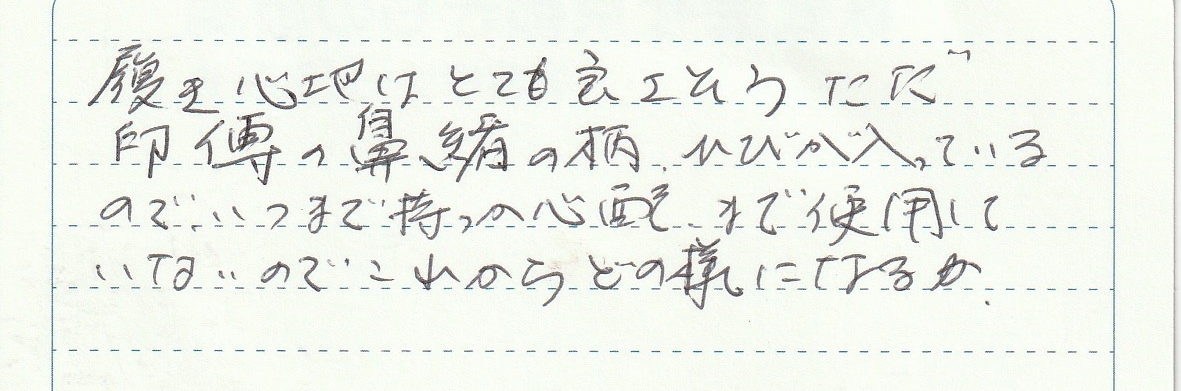 履き心地はとても良さそう ただ
印傳の鼻緒の柄、ひびが入っている
ので、いつまで持つか心配、まだ使用して
いないのでこれからどの様になるか、